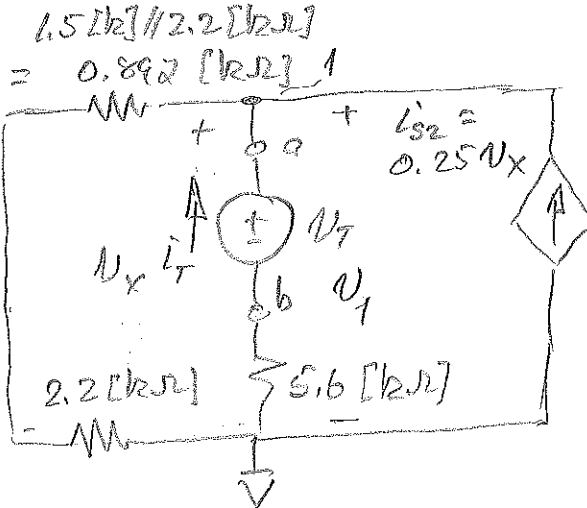 1.5 [k] // 2.2 [kΩ]
= 0.892 [kΩ] 1
+ a + i_S2 =
0.25 v_X
v_X i_T + - v_T
b v_1
2.2 [kΩ] 5.6 [kΩ]
- -